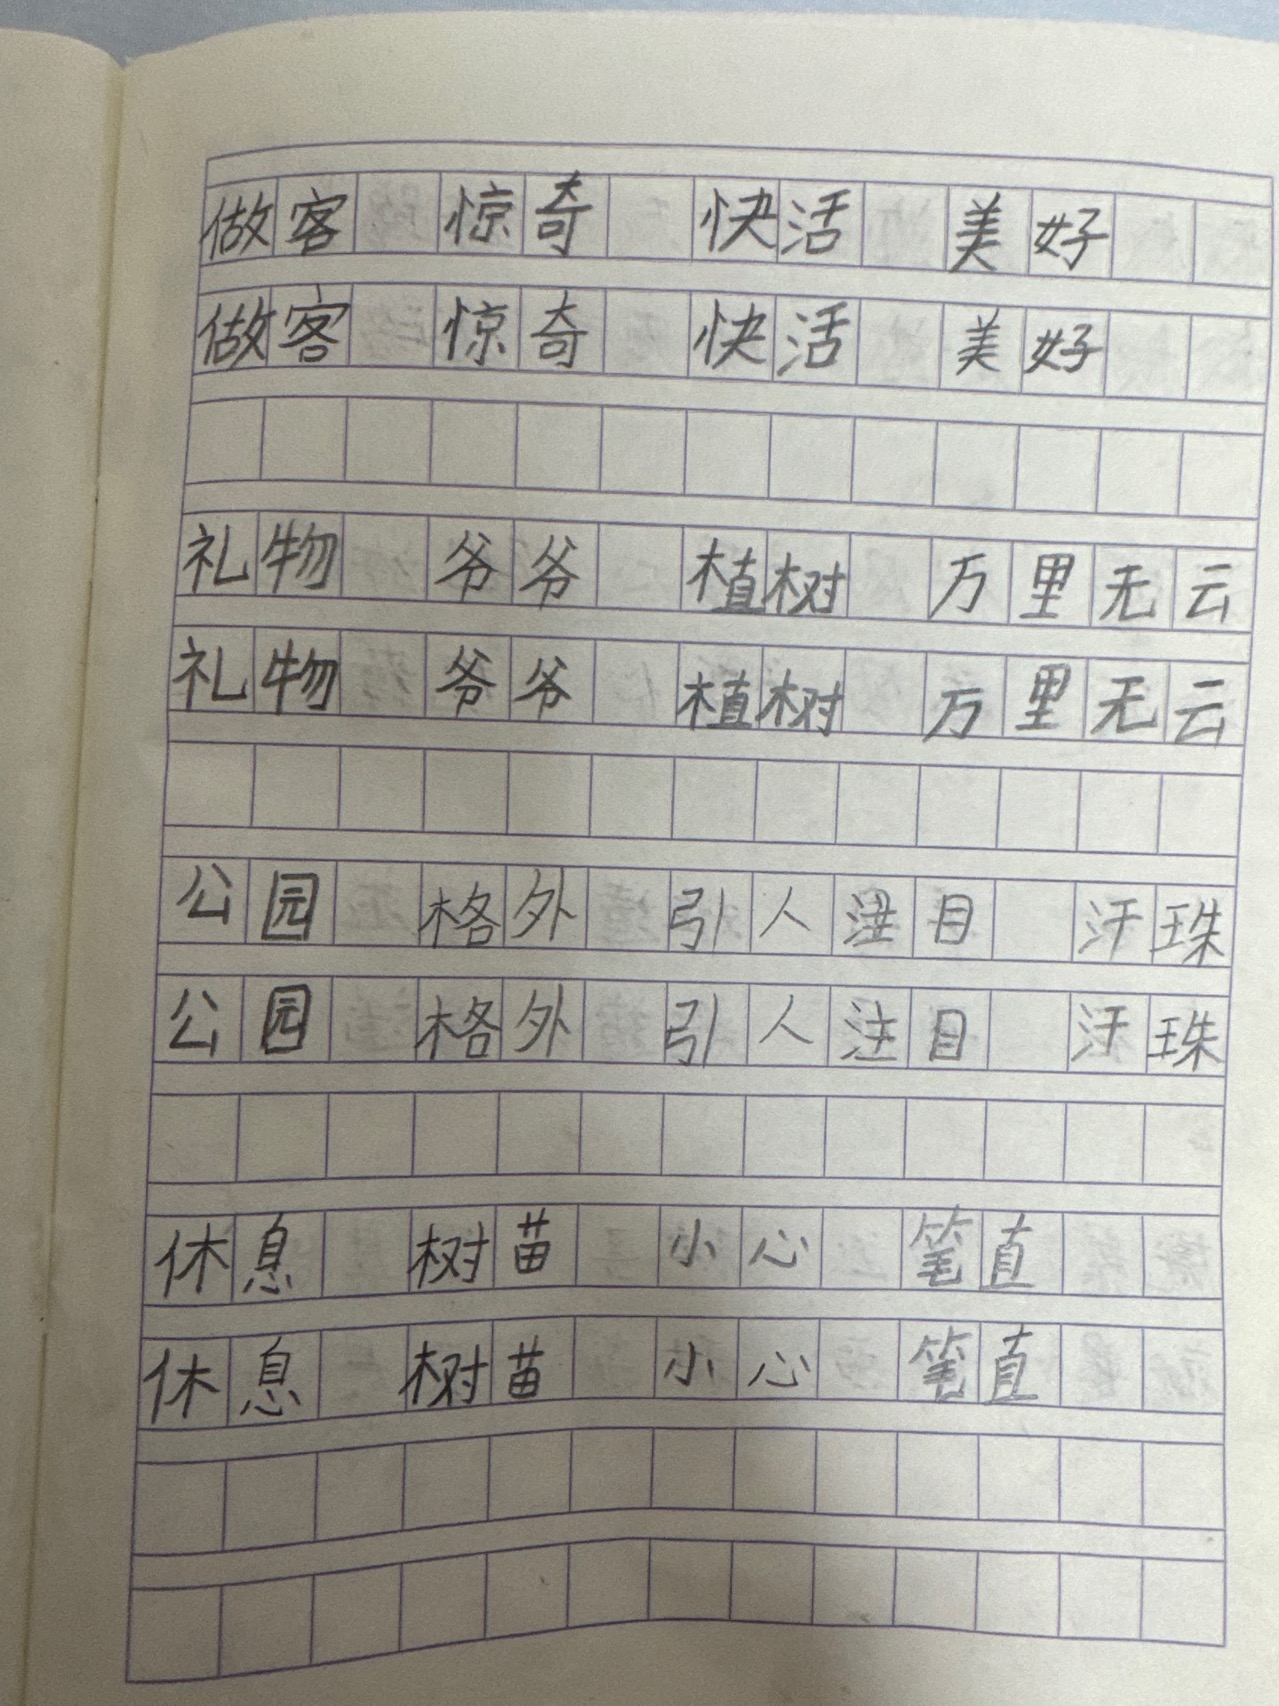 做客 惊奇 快活 美好
做客 惊奇 快活 美好
礼物 爷爷 植树 万里无云
礼物 爷爷 植树 万里无云
公园 格外 引人注目 汗珠
公园 格外 引人注目 汗珠
休息 树苗 小心 笔直
休息 树苗 小心 笔直